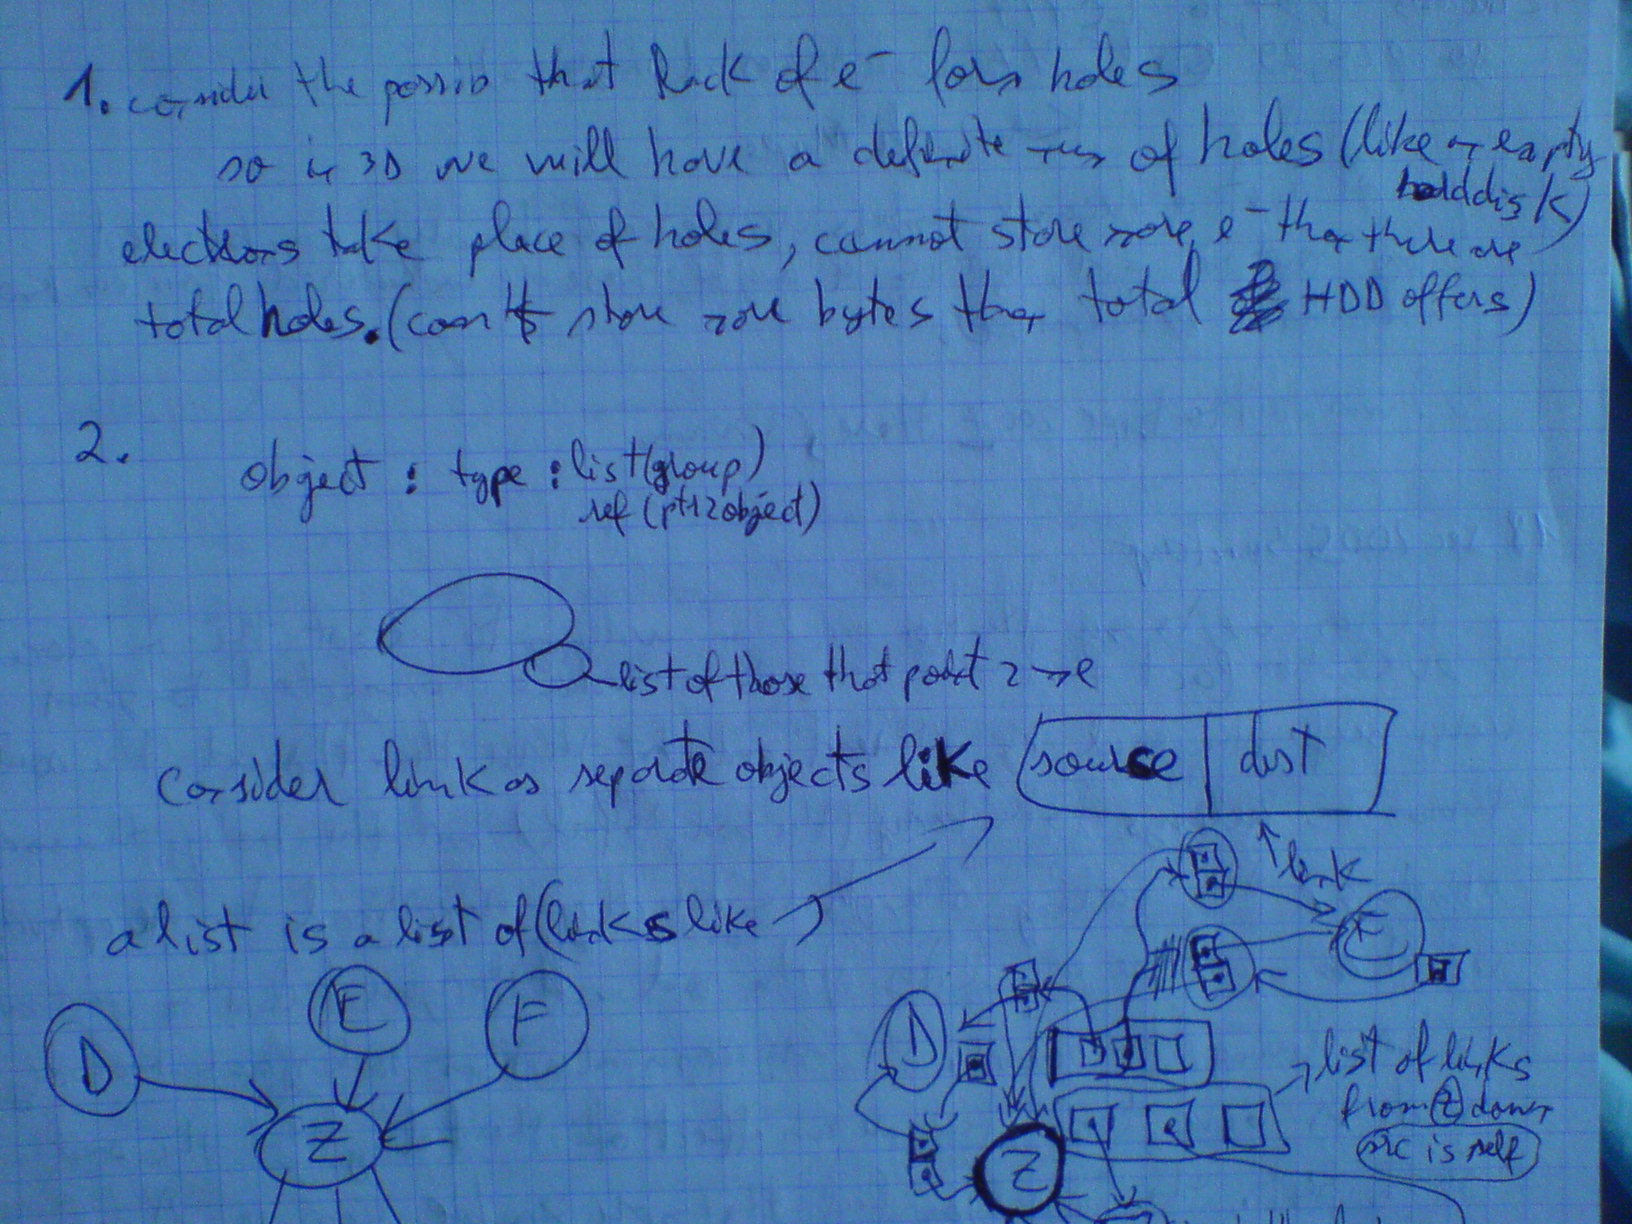 1. consider the possib that lack of e⁻ form holes
so in 3D we will have a definite num of holes (like an empty
harddisk)
electrons take place of holes, cannot store more e⁻ than there are
total holes. (can't store more bytes than total HDD offers)
2.
object : type : list (group)
ref (ptr2object)
list of those that point 2 me
consider link as separate objects like source | dest
link
a list is a list of (links like )
D
E
F
Z
F
D
list of links
from Z down
src is self
Z